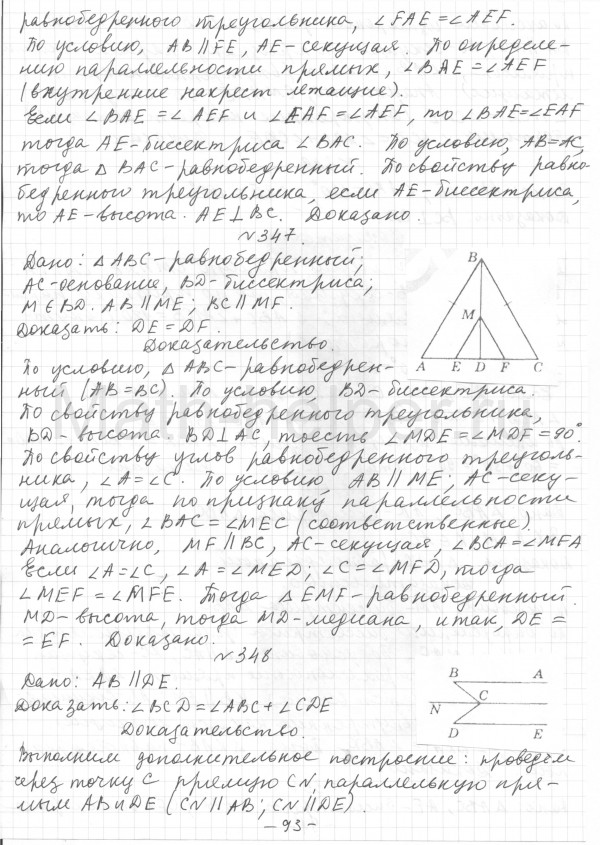 равнобедренного треугольника, ∠FAE=∠AEF.
По условию, AB∥FE, AE-секущая. По определе-
нию параллельности прямых, ∠BAE=∠AEF
(внутренние накрест лежащие).
Если ∠BAE=∠AEF и ∠EAF=∠AEF, то ∠BAE=∠EAF
тогда AE-биссектриса ∠BAC. По условию, AB=AC,
тогда △BAC-равнобедренный. По свойству равно-
бедренного треугольника, если AE-биссектриса,
то AE-высота. AE⊥BC. Доказано.
№347.
Дано: △ABC-равнобедренный;
AC-основание, BD-биссектриса;
M∈BD. AB∥ME; BC∥MF.
Доказать: DE=DF.
Доказательство.
B
M
A E D F C
По условию, △ABC-равнобедрен-
ный (AB=BC). По условию, BD-биссектриса.
По свойству равнобедренного треугольника,
BD-высота. BD⊥AC, тоесть ∠MDE=∠MDF=90°.
По свойству углов равнобедренного треуголь-
ника, ∠A=∠C. По условию AB∥ME, AC-секу-
щая, тогда по признаку параллельности
прямых, ∠BAC=∠MEC (соответственные).
Аналогично, MF∥BC, AC-секущая, ∠BCA=∠MFA
Если ∠A=∠C, ∠A=∠MED; ∠C=∠MFD, тогда
∠MEF=∠MFE. Тогда △EMF-равнобедренный.
MD-высота, тогда MD-медиана, итак, DE=
=EF. Доказано.
№348
Дано: AB∥DE.
Доказать: ∠BCD=∠ABC+∠CDE
Доказательство.
B A
C
N
D E
Выполним дополнительное построение: проведем
через точку C прямую CN, параллельную пря-
мым AB и DE (CN∥AB; CN∥DE).
-93-